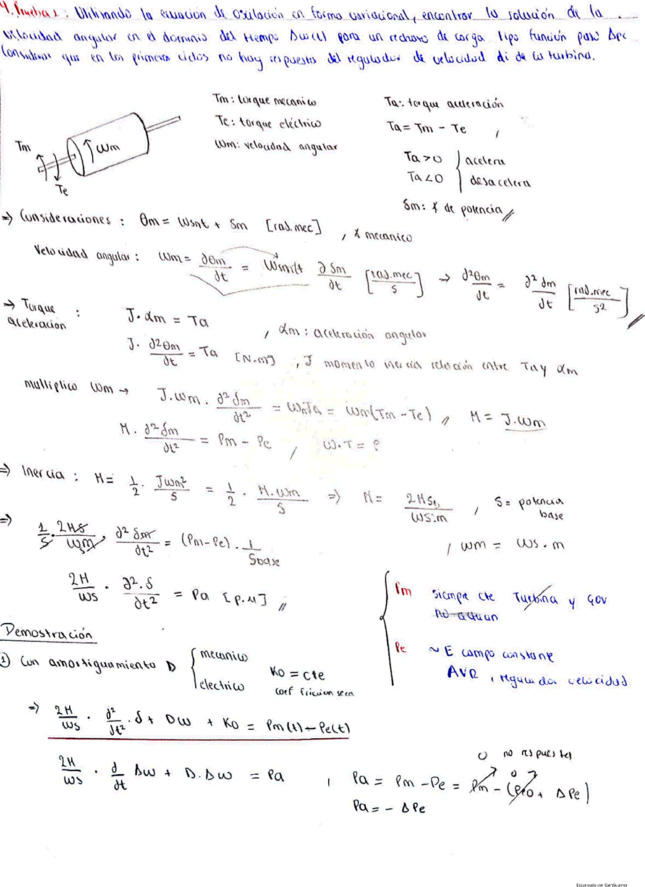 4. Prueba 1: Utilizando la ecuación de oscilación en forma variacional, encontrar la solución de la
velocidad angular en el dominio del tiempo Δw(t) para un rechazo de carga tipo función paso Δpe
Considerar que en los primeros ciclos no hay respuesta del regulador de velocidad di de la turbina.
Tm: torque mecanico
Te: torque eléctrico
Wm: velocidad angular
Ta: torque aceleración
Ta = Tm - Te ,
Ta > 0 } acelera
Ta < 0 } desacelera
δm: ∡ de potencia
Tm
Wm
Te
=> Consideraciones : θm = Wsnt + δm [rad.mec] , ∡ mecanico
Velocidad angular : Wm = ∂θm/∂t = Wsmdt ∂δm/∂t [rad.mec/s] → ∂²θm/∂t = ∂²δm/∂t [rad.mec/s²]
→ Torque aceleracion : J·αm = Ta , αm: aceleración angular
J · ∂²θm/∂t = Ta [N.m] , J momento inercia relación entre Ta y αm
multiplico Wm → J.Wm · ∂²δm/∂t² = WmTa = Wm(Tm - Te) , M = J.Wm
M · ∂²δm/∂t² = Pm - Pe , W.T = P
=> Inercia : H = 1/2 · JWm²/S = 1/2 · M.Wm/S => M = 2HS/Ws.m , S = potencia base
=> 1/S · 2HS/Wm · ∂²δm/∂t² = (Pm-Pe) · 1/Sbase , Wm = Ws.m
2H/Ws · ∂².δ/∂t² = Pa [p.u]
Pm siempre cte Turbina y GOV
no actuan
Pe ~ E campo constante
AVR , regulador velocidad
Demostración
① Con amortiguamiento D { mecanico
electrico
Ko = cte
coef friccion seca
=> 2H/Ws · ∂²/∂t² · δ + Dω + Ko = Pm(t) - Pe(t)
0 no respuesta
2H/Ws · ∂/∂t Δω + D.Δω = Pa , Pa = Pm - Pe = Pm - (Peo + ΔPe)
Pa = - ΔPe
Escaneado con CamScanner